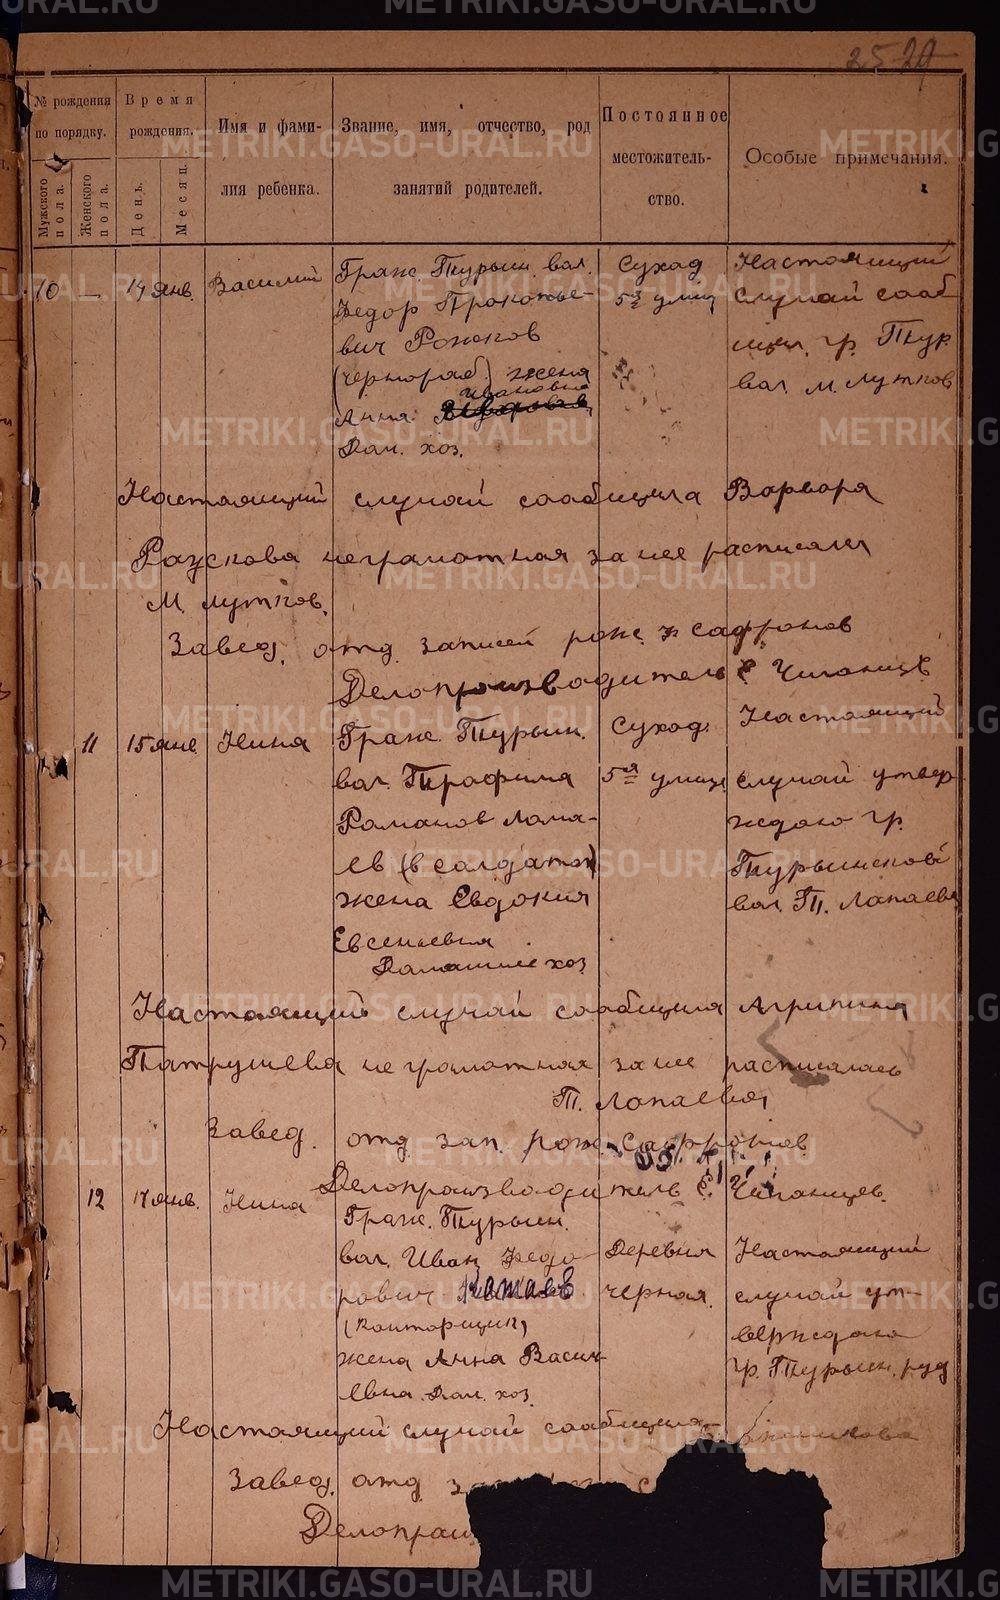 25 20
№ рождения по порядку.
Мужского пола.
Женского пола.
Время рождения.
День.
Месяц.
Имя и фамилия ребенка.
Звание, имя, отчество, род занятий родителей.
Постоянное местожительство.
Особые примечания.
10 — 14 янв. Василий
Граж. Турьин. вал.
Федор Прокопье-
вич Рожков
(чернораб.) жена
Ивановна
Анна
Дом. хоз.
Суход
5я улиц
Настоящий
случай сооб
щил. гр. Тур.
вал. М. Лутков
Настоящий случай сообщила Варвара
неграмотная за нее расписался
М. Лутков.
Завед. отд. записей рож. Сафронов
Делопроизводитель
11 15 янв Нина
Граж. Турьин.
вал. Трофима
Романов Лопа-
ев (в солдатах)
жена Евдокия
Евсеньевна
Домашнее хоз
Суход.
5я улица
Настоящий
случай утвер
ждаю гр.
Турьинской
вал. Т. Лапаева
Настоящий случай сообщила Агрипина
Патрушева неграмотная за нее расписалась
Т. Лопаева
Завед. отд. зап. рож. Сафронов
Делопроизводитель
12 17 янв. Нина
Граж. Турьин.
вал. Иван Федо
рович Катаев
(конторщик)
жена Анна Васил
евна Дом. хоз.
Деревня
черная.
Настоящий
случай ут-
верждаю
гр. Турьин. руд
Настоящий случай сообщила
Завед. отд. з
Делопрои
METRIKI.GASO-URAL.RU